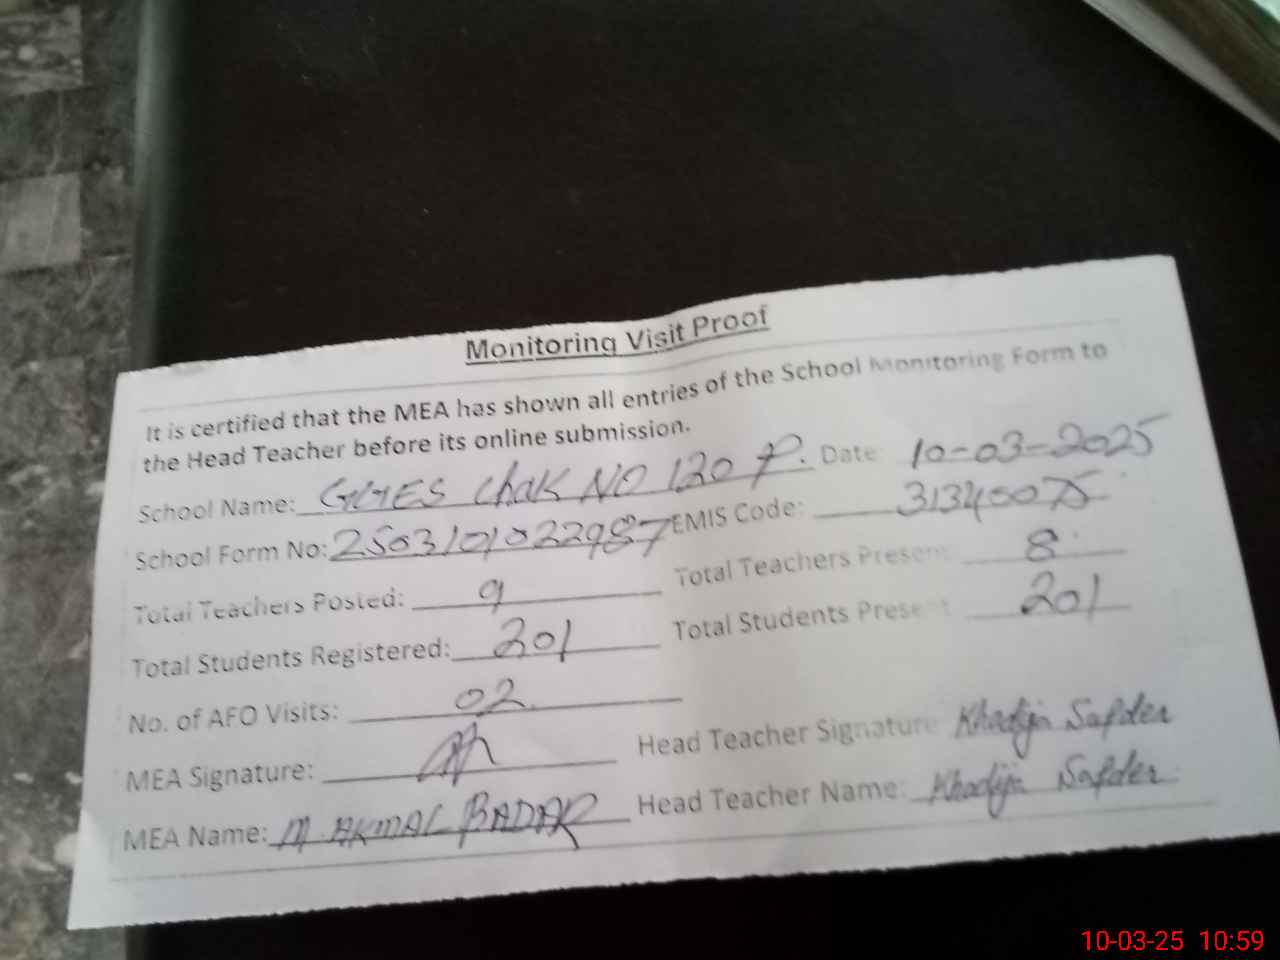 Monitoring Visit Proof
It is certified that the MEA has shown all entries of the School Monitoring Form to
the Head Teacher before its online submission.
School Name: GGES Chak NO 120 P. Date: 10-03-2025
School Form No: 2503101022987 EMIS Code: 31340075
Total Teachers Posted: 9 Total Teachers Present 8
Total Students Registered: 201 Total Students Present 201
No. of AFO Visits: 02
MEA Signature: Head Teacher Signature Khadija Safder
MEA Name: M. AKMAL BADAR Head Teacher Name: Khadija Safder
10-03-25 10:59